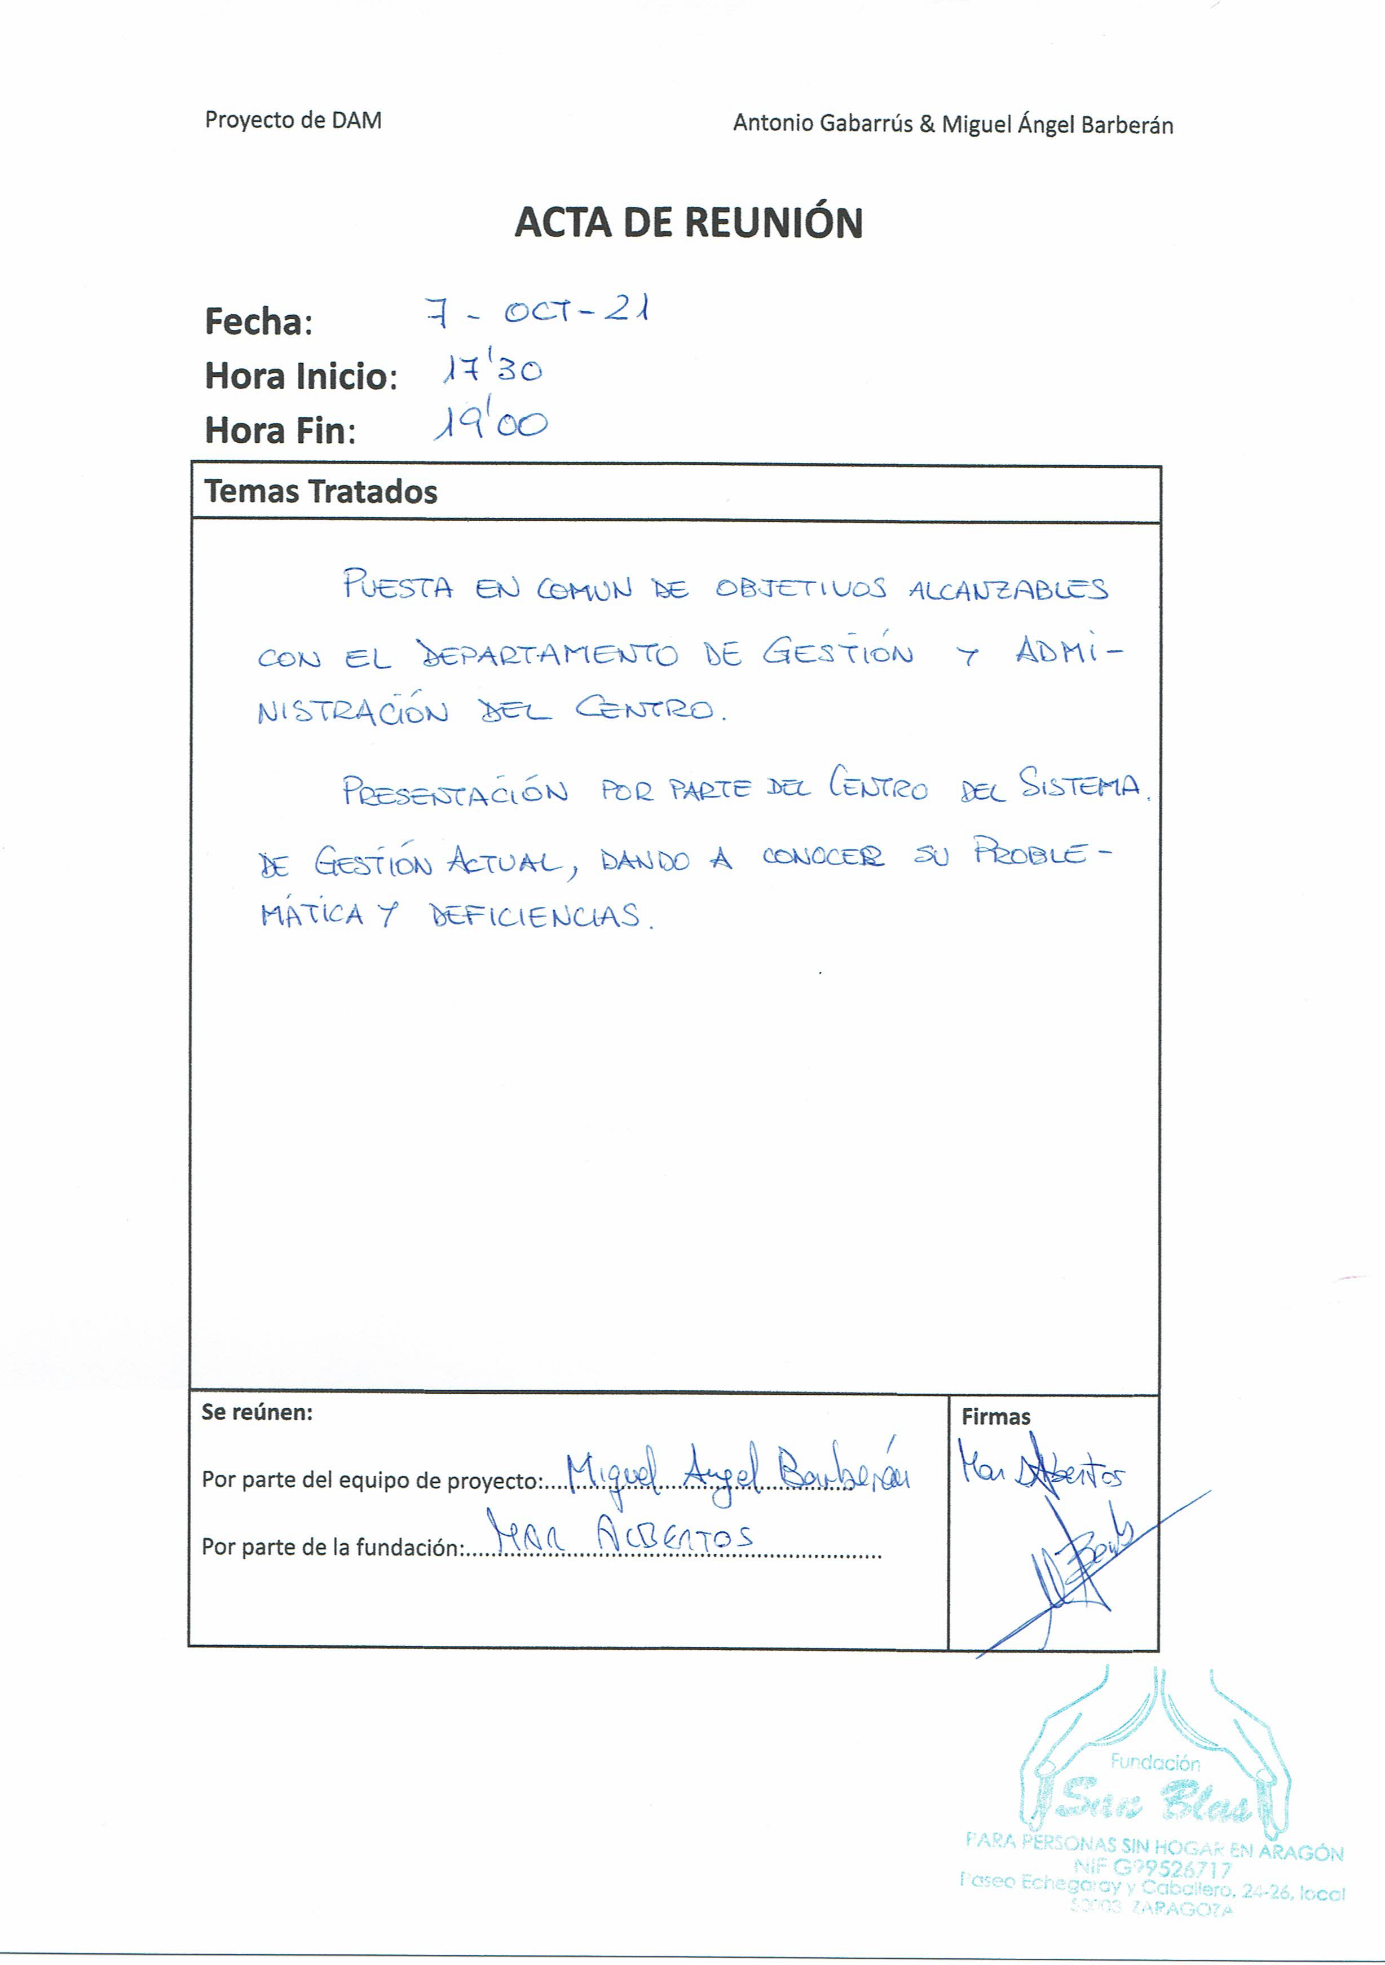 Proyecto de DAM
Antonio Gabarrús & Miguel Ángel Barberán
ACTA DE REUNIÓN
Fecha: 7 - OCT - 21
Hora Inicio: 17'30
Hora Fin: 19'00
Temas Tratados
PUESTA EN COMUN DE OBJETIVOS ALCANZABLES
CON EL DEPARTAMENTO DE GESTIÓN Y ADMI-
NISTRACIÓN DEL CENTRO.
PRESENTACIÓN POR PARTE DEL CENTRO DEL SISTEMA.
DE GESTIÓN ACTUAL, DANDO A CONOCER SU PROBLE-
MÁTICA Y DEFICIENCIAS.
Se reúnen:
Firmas
Por parte del equipo de proyecto: Miguel Angel Barberán
Mar Albertos
Por parte de la fundación: MAR ALBERTOS
Fundación
San Blas
PARA PERSONAS SIN HOGAR EN ARAGÓN
NIF G99526717
Paseo Echegaray y Caballero, 24-26, local
50003 ZARAGOZA